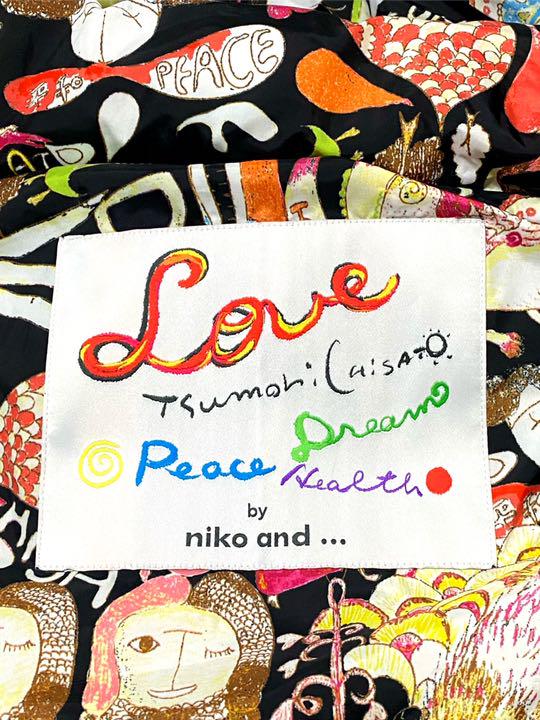 PEACE
Love
TSumoriCHiSATO
Dream
Peace
Health
by
niko and ...